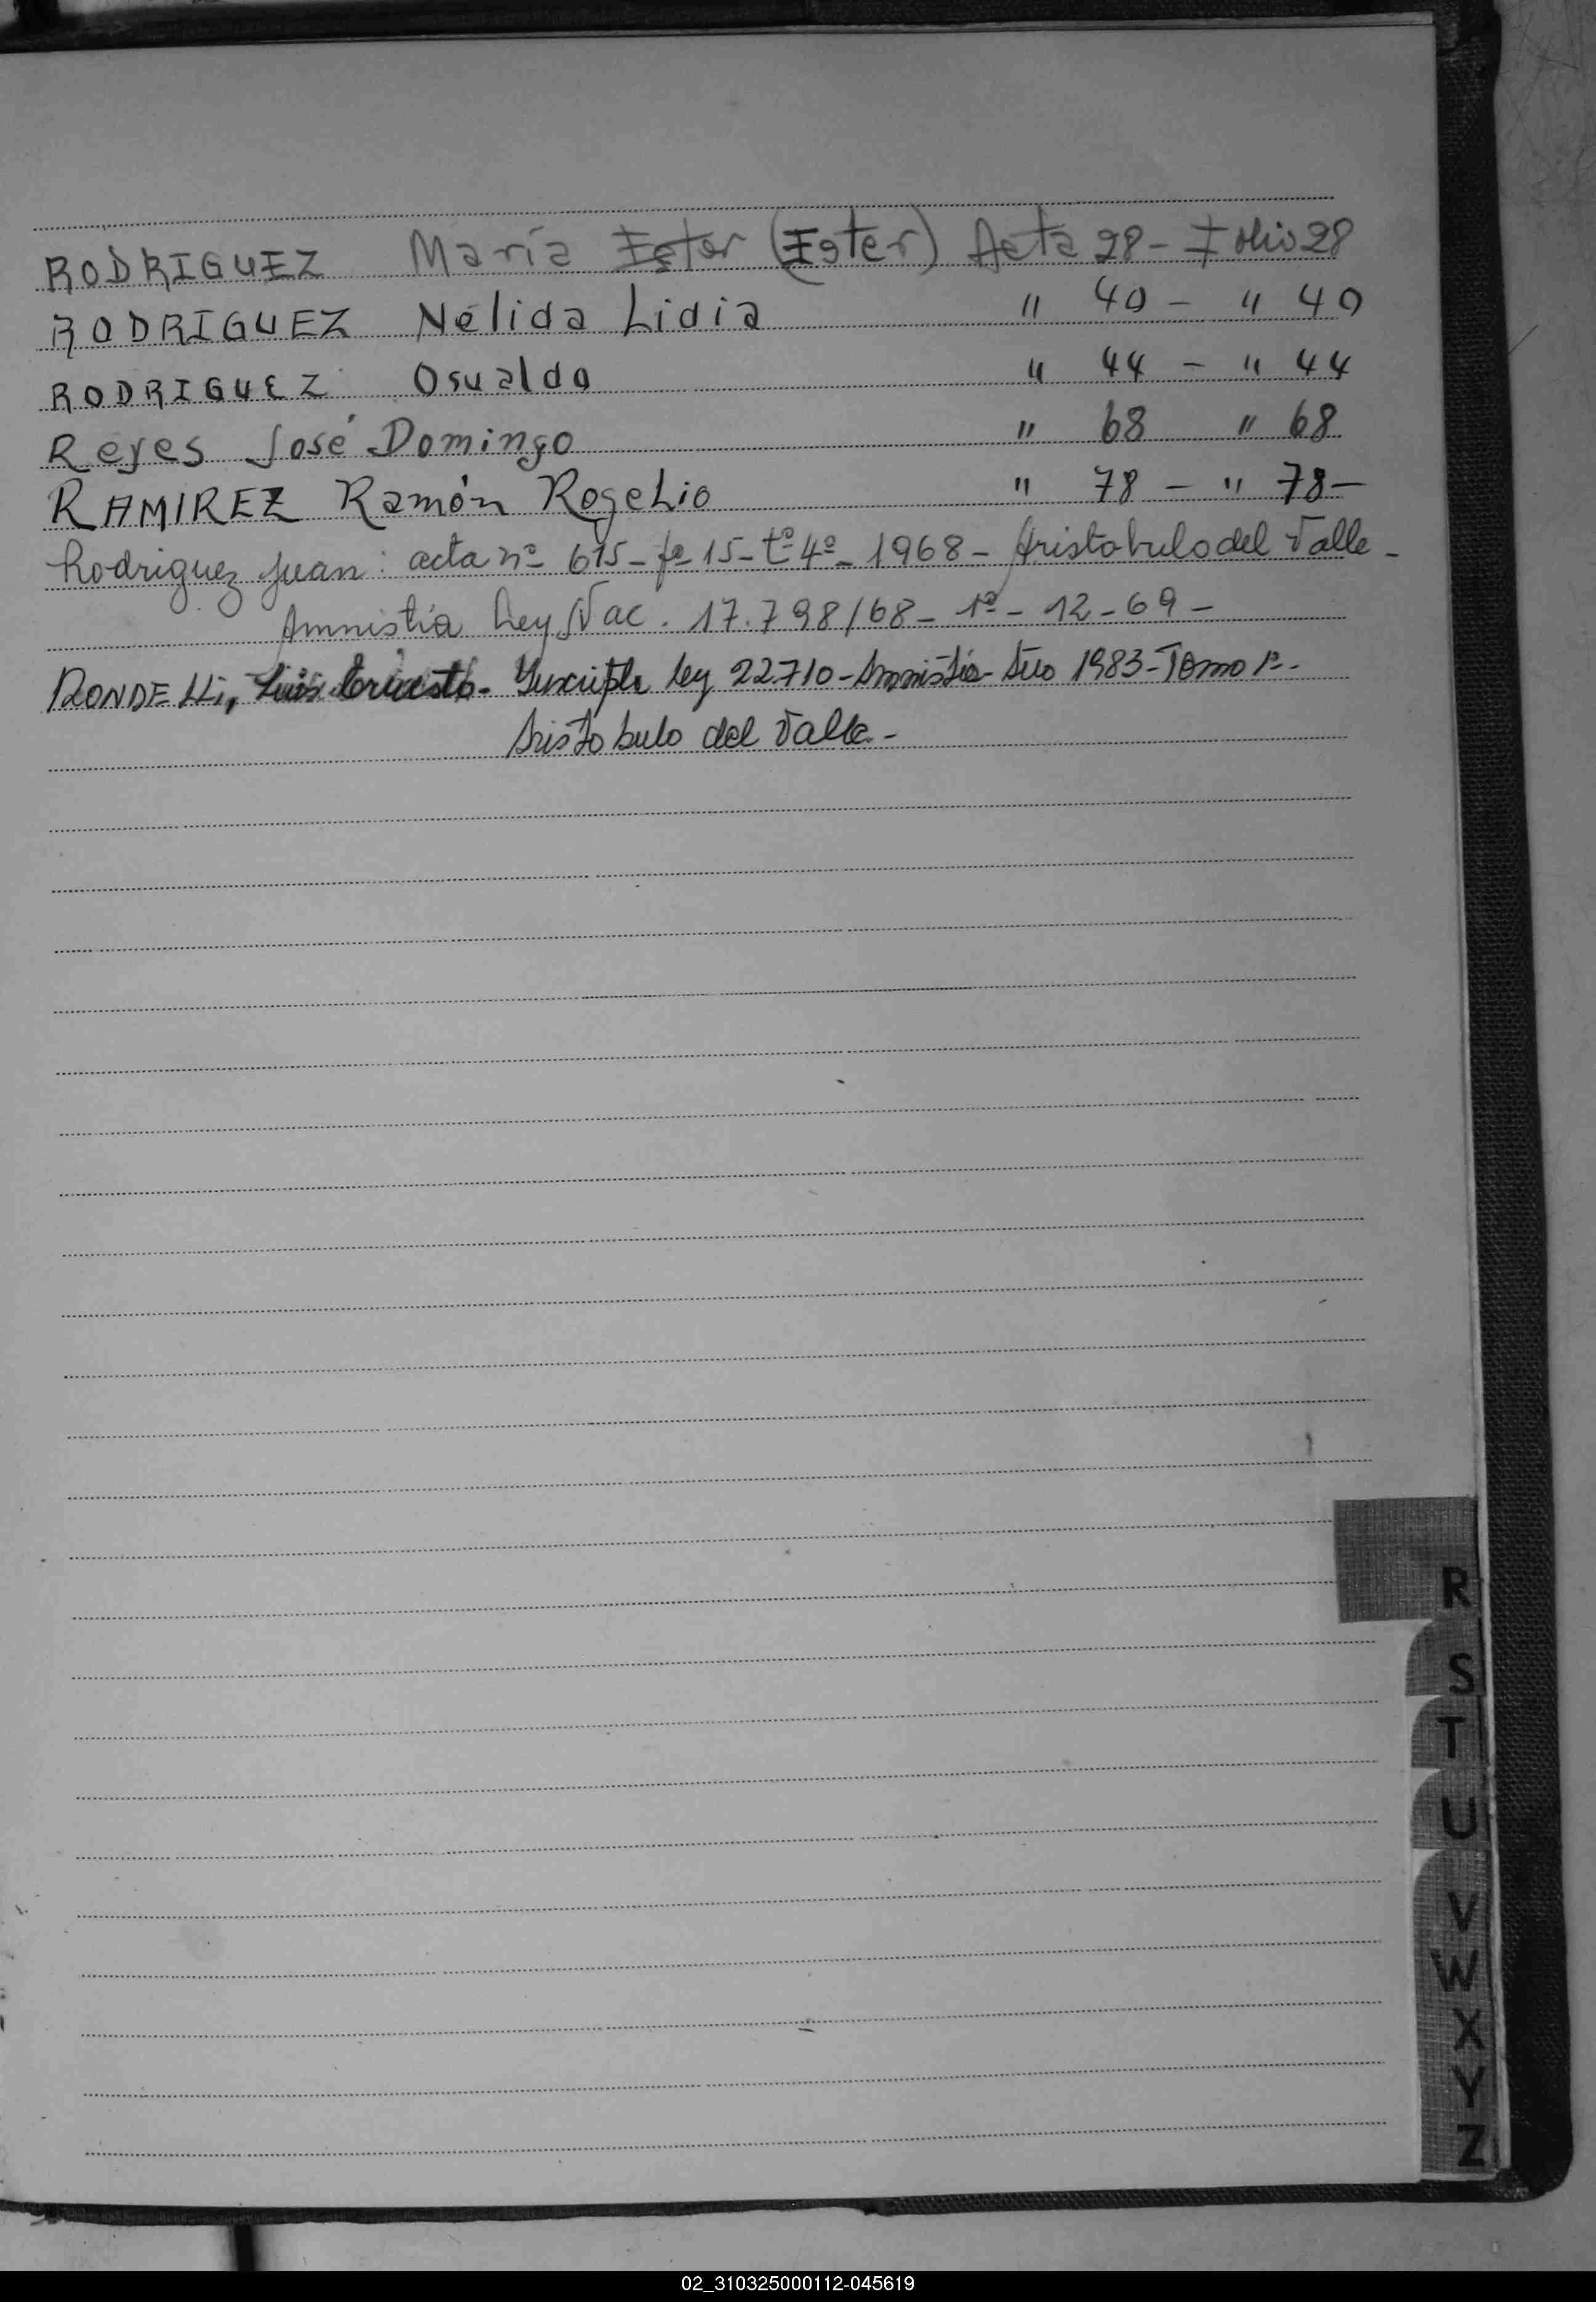 RODRIGUEZ María Ester (Ester) Acta 28 - Folio 28
RODRIGUEZ Nélida Lidia " 40 - " 40
RODRIGUEZ Osualdo " 44 - " 44
Reyes José Domingo " 68 " 68
RAMIREZ Ramón Rogelio " 78 - " 78 -
Rodriguez Juan: acta nº 615 - fº 15 - tº 4º - 1968 - Aristobulo del Valle -
Amnistía Ley Nac. 17.798/68 - 1º - 12 - 69 -
RONDELLi, Luis Ernesto - Inscripta Ley 22710 - Amnistía - Año 1983 - Tomo 1º -
Aristobulo del Valle -
R
S
T
U
V
W
X
Y
Z
02_310325000112-045619